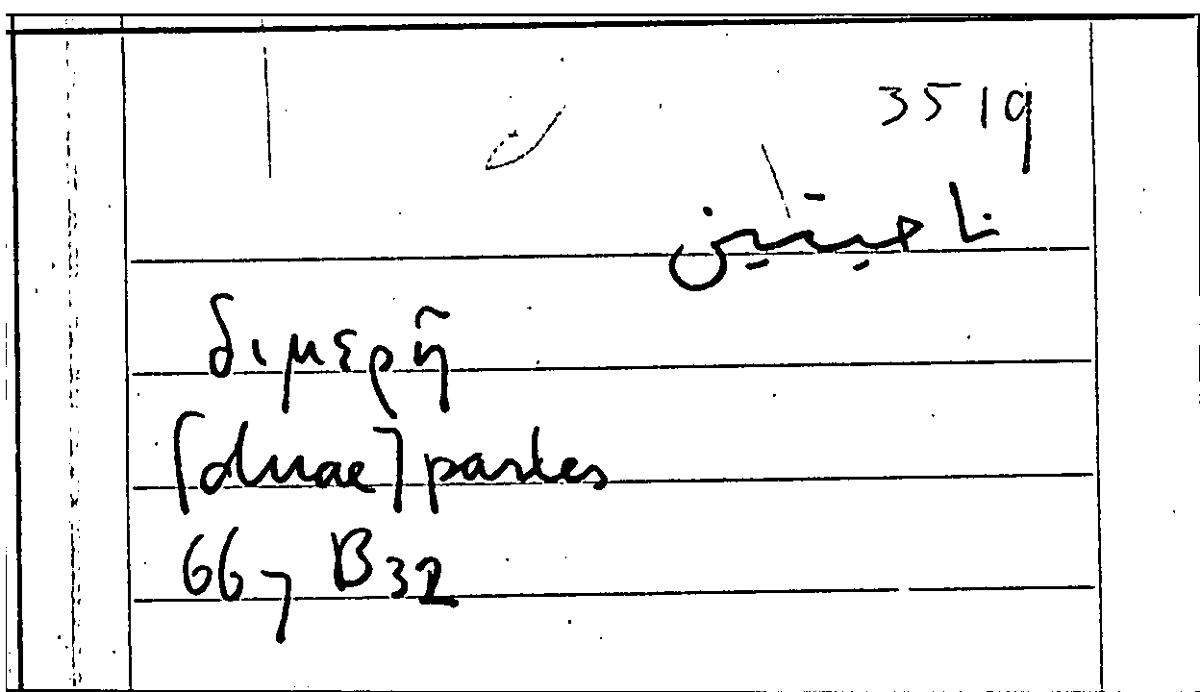 3519
ناحيتين
διμερῆ
[duae] partes
66, B32